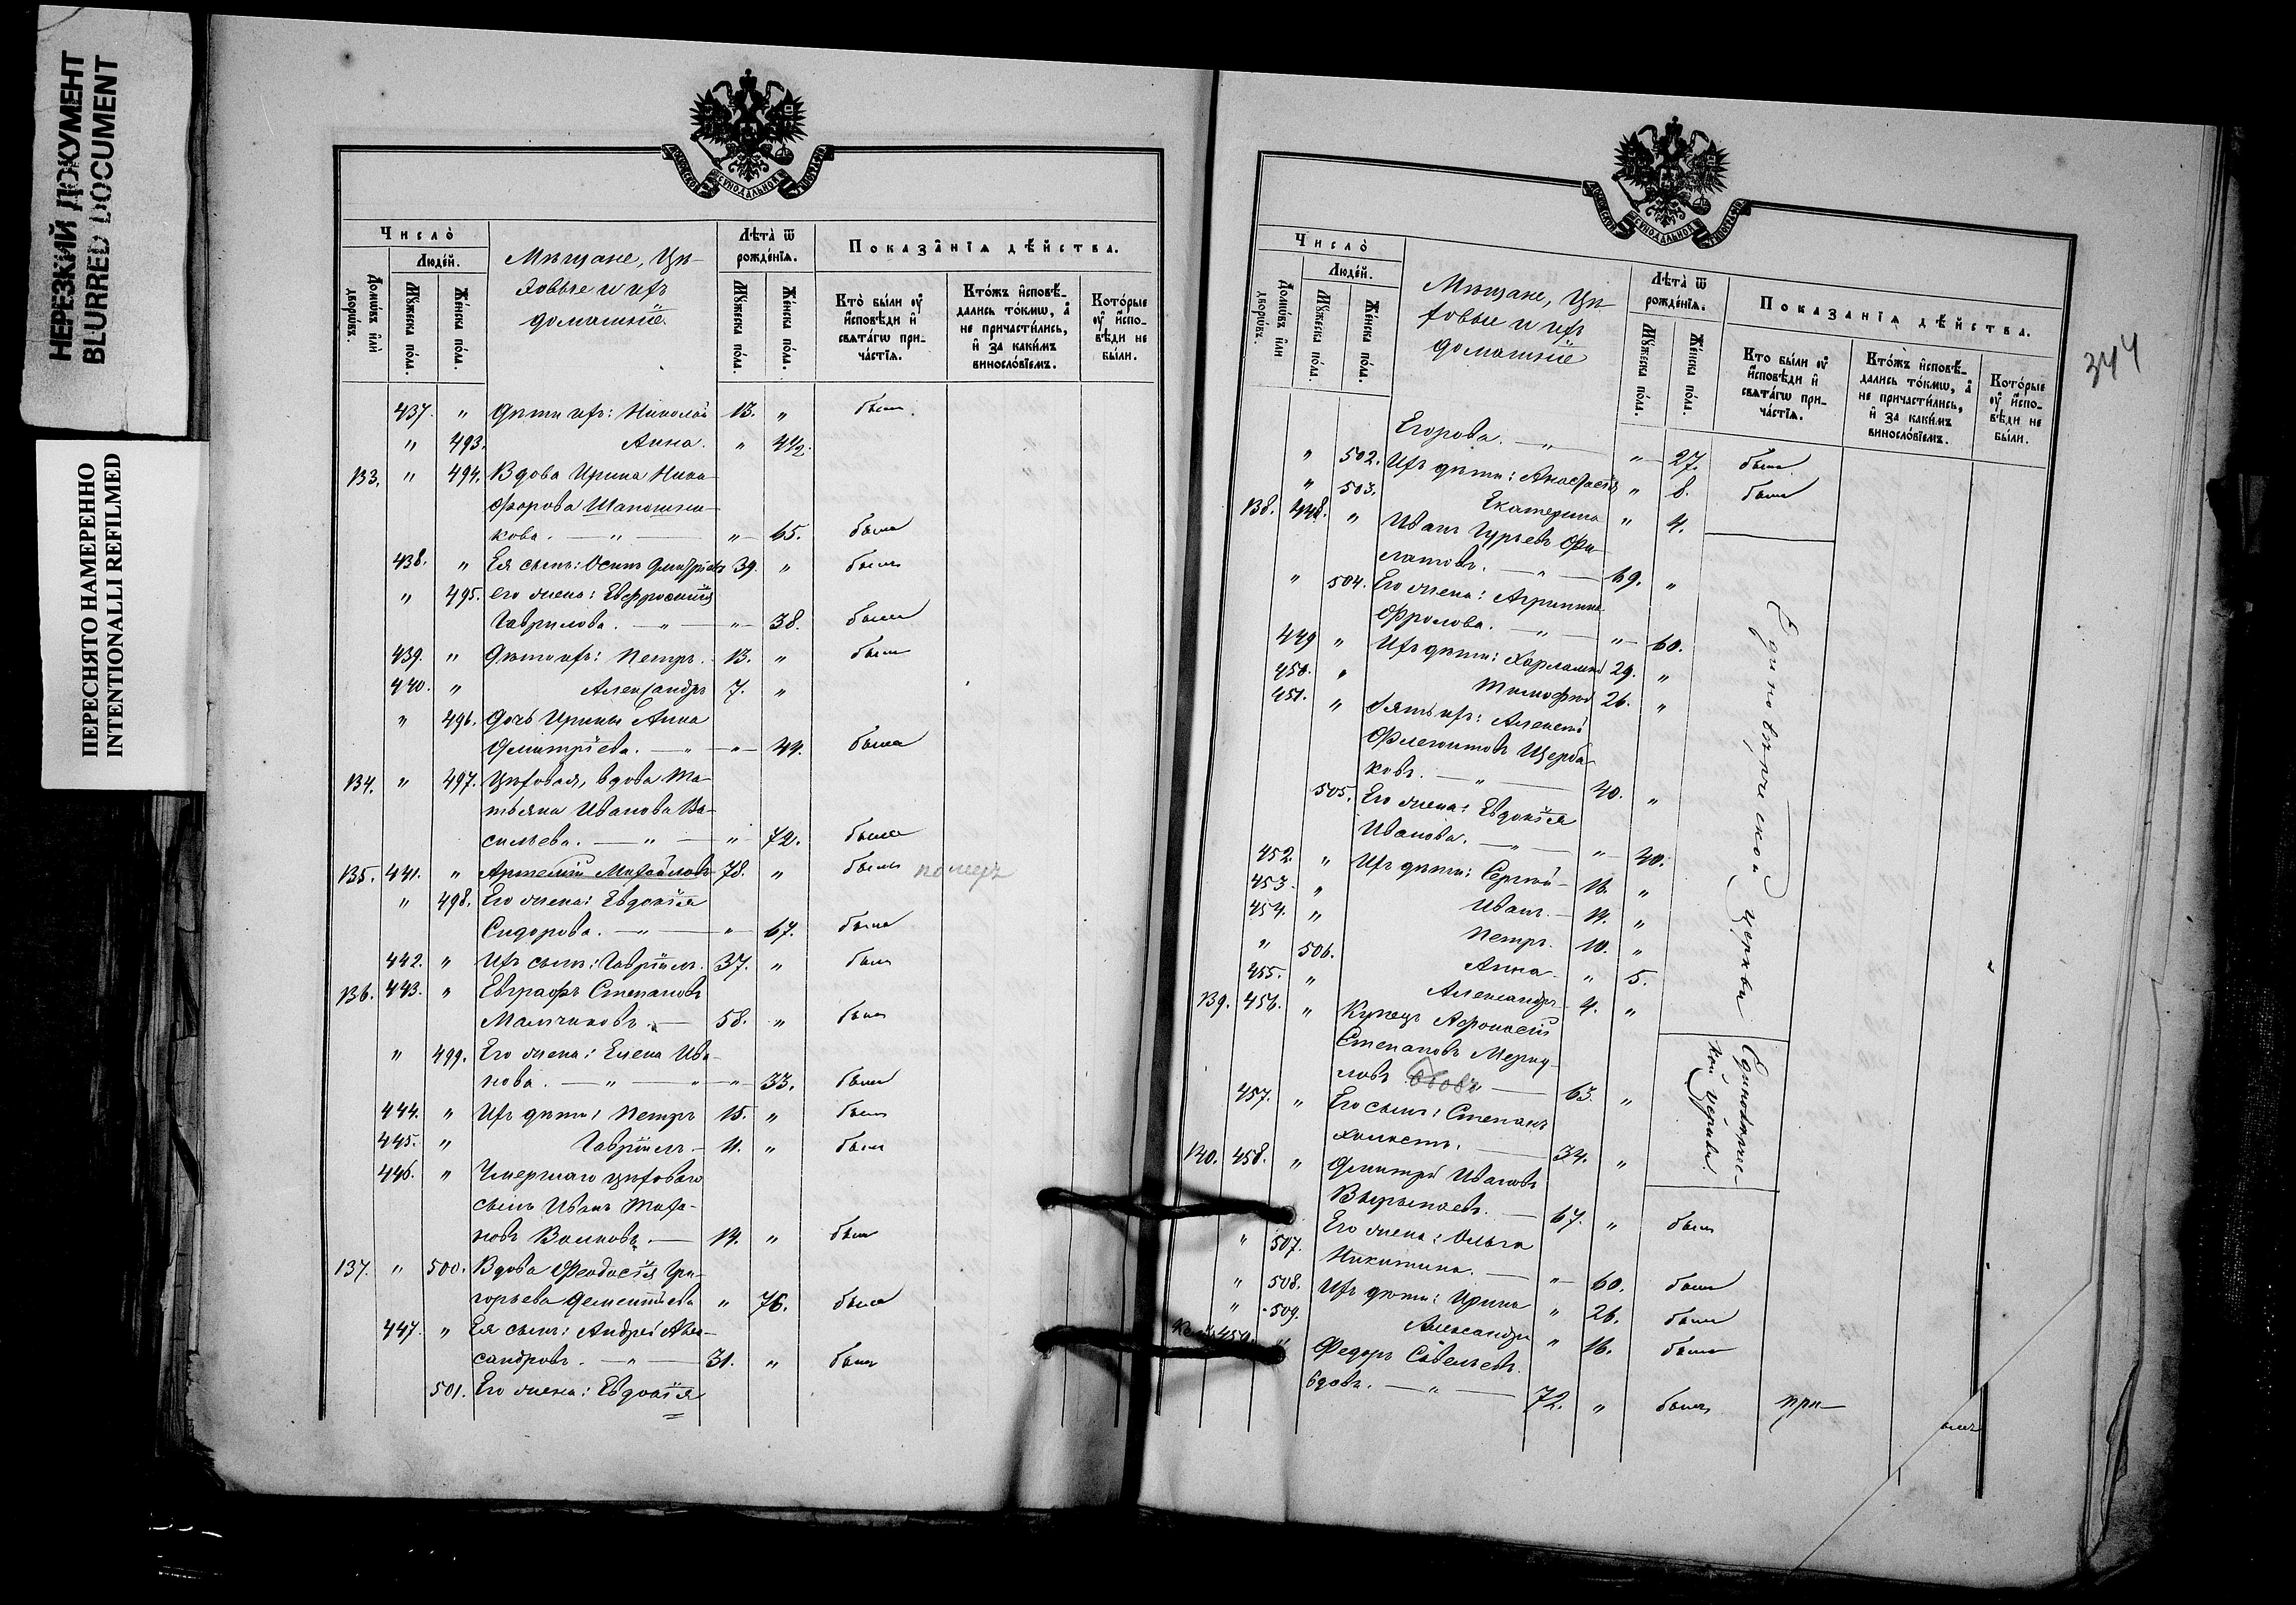 НЕРЕЗКИЙ ДОКУМЕНТ
BLURRED DOCUMENT
ПЕРЕСНЯТО НАМЕРЕННО
INTENTIONALLI REFILMED
Число̀
Людéй.
Домѡ́въ и҆лѝ дворѡ́въ.
Мꙋ́жеска по́ла.
Же́нска по́ла.
Мѣщане, Цѣ-
ховые и ихъ
домашніе
Лѣта̀ ѿ рожде́нїѧ.
Мꙋ́жеска по́ла.
Же́нска по́ла.
Показа̑нїѧ дѣ́йства.
Кто̀ бы́ли ᲂу҆ и҆сповѣ́ди и҆ свѧта́гѡ при-ча́стїѧ.
Кто́жъ и҆сповѣ́-дались то́кмѡ, а҆ не причасти́лись, и҆ за каки́мъ винослóвїемъ.
Кото́рые ᲂу҆ и҆спо-вѣ́ди не бы́ли.
437. " Дѣти ихъ: Николай 13. " былъ
" 493. Анна. " 4½.
133. " 494. Вдова Ирина Ники-
форова Шапошни-
кова. — " — " 65. была
438. " Ея сынъ: Осипъ Дмитріевъ 39. " былъ
" 495. его жена: Евфросинія
Гаврилова. — " — " 38. была
439. " Дѣти ихъ: Петръ. 13. " былъ
440. " Александръ 7. "
" 496. Дочь Ирины Анна
Дмитріева. — " — " 44. была
134. " 497. Цѣховая, вдова Та-
тьяна Иванова Ва-
сильева. — " — " 72. была
135. 441. " Артемій Михайловъ 78. " былъ померъ
" 498. Его жена: Евдокія
Сидорова. — " — " 67. была
442. " Ихъ сынъ: Гавріилъ. 37. " былъ
136. 443. " Евграфъ Степановъ
Мальчиковъ. — 58. " былъ
" 499. Его жена: Елена Ива-
нова. — " — " 33. была
444. " Ихъ дѣти: Петръ 15. " былъ
445. " Гавріилъ — 11. " былъ
446. " Умершаго цѣховаго
сынъ Иванъ
новъ Волковъ. — 14. " былъ
137. " 500. Вдова Феодосія Гри-
горьева Дементьева " 76. была
447. " Ея сынъ: Андрей Алек-
сандровъ. — " — 31. " былъ
501. Его жена: Евдокія
344
Число̀
Людéй.
Домѡ́въ и҆лѝ дворѡ́въ.
Мꙋ́жеска по́ла.
Же́нска по́ла.
Мѣщане, Цѣ-
ховые и ихъ
домашніе
Лѣта̀ ѿ рожде́нїѧ.
Мꙋ́жеска по́ла.
Же́нска по́ла.
Показа̑нїѧ дѣ́йства.
Кто̀ бы́ли ᲂу҆ и҆сповѣ́ди и҆ свѧта́гѡ при-ча́стїѧ.
Кто́жъ и҆сповѣ́-дались то́кмѡ, а҆ не причасти́лись, и҆ за каки́мъ винослóвїемъ.
Кото́рые ᲂу҆ и҆спо-вѣ́ди не бы́ли.
Егорова. — " — " 27. была
" 502. Ихъ дѣти: Анастасія " 8. была
" 503. Екатерина " 4.
138. 448. " Иванъ Гурьевъ Фи-
латовъ. — " — 69. "
" 504. Его жена: Агрипина
Фролова. — " — " 60.
449 " Ихъ дѣти: Харлампій 29. "
450. " Тимофей 26. "
451. " Зять ихъ: Алексей
Флегонтовъ Щерба-
ковъ. — " — 40. "
505. Его жена: Евдокія
Иванова. — " — " 40.
452. " Ихъ дѣти: Сергѣй — 16. "
453. " Иванъ. — 14. "
454. " Петръ. 10. "
" 506. Анна. " 5.
455. " Александръ 4. "
Единовѣрческой церкви
139. 456. " Купецъ Афонасій
Степановъ Мерку-
ловъ вдовъ — 63. "
457. " Его сынъ: Степанъ
холостъ. — 34. "
Единовѣрчес-
кой церкви.
140. 458. " Дмитрій Ивановъ
Вырыпаевъ. — 67. " былъ
" 507. Его жена: Ольга
Никитина. — " 60. была
" 508. Ихъ дѣти: Ирина " 26. была
" 509. Александра " 16. была
459. " Федоръ Савельевъ.
вдовъ. — " — 72. " былъ при-